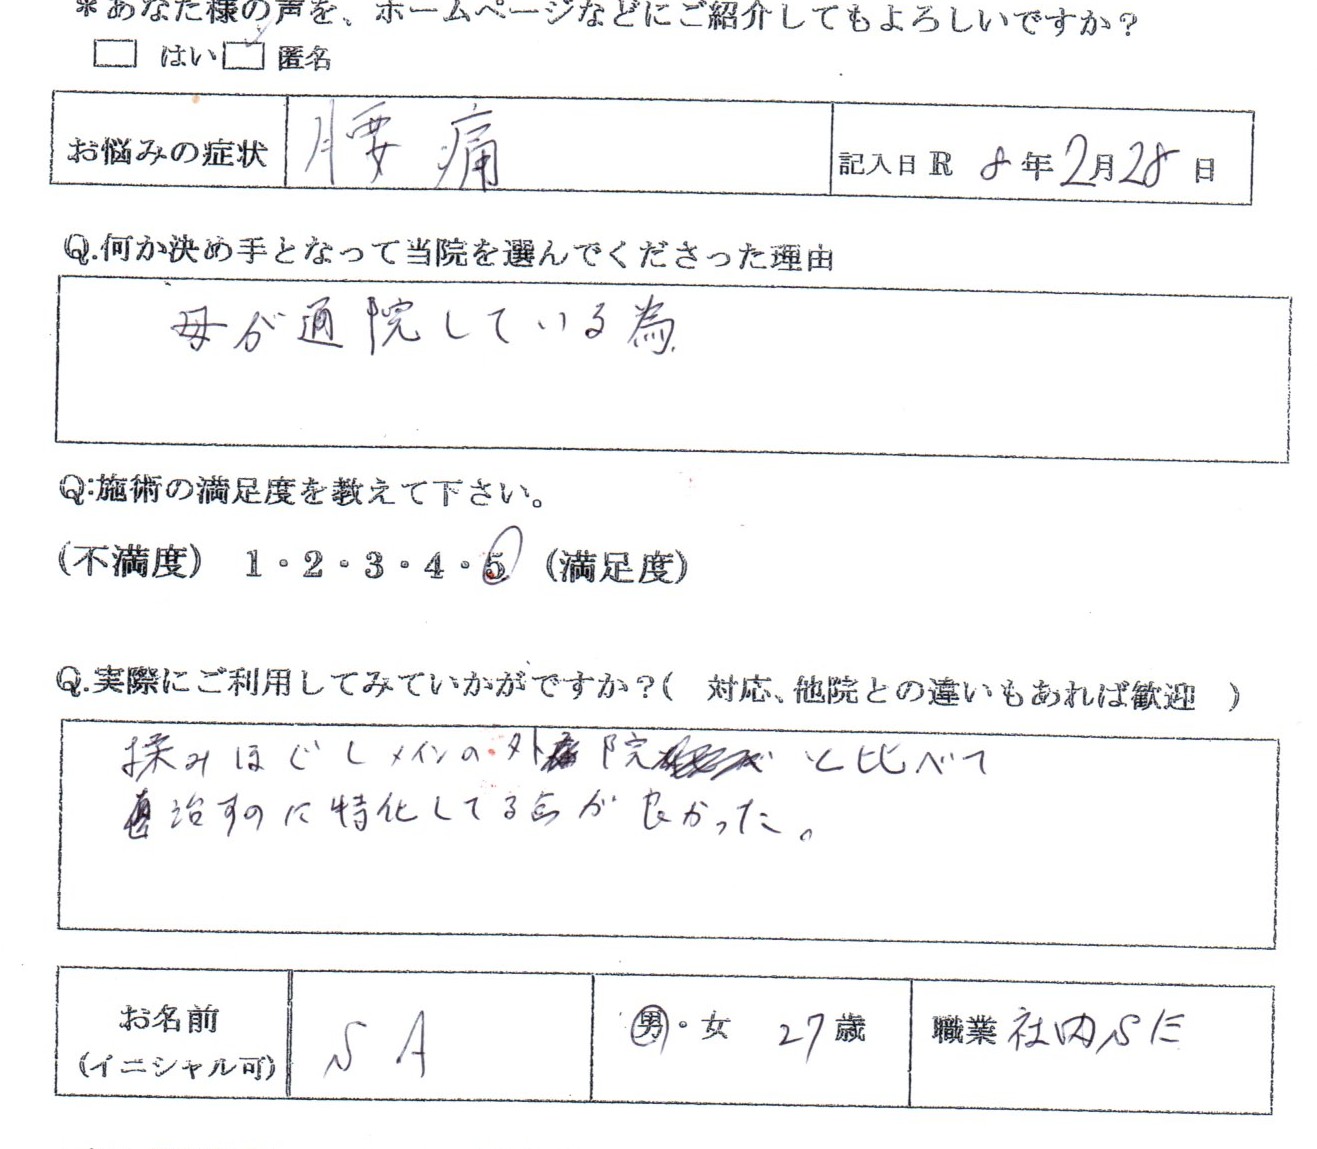 *あなた様の声を、ホームページなどにご紹介してもよろしいですか?
□ はい □ 匿名
お悩みの症状 腰痛 記入日 R 8年2月28日
Q.何か決め手となって当院を選んでくださった理由
母が通院している為
Q:施術の満足度を教えて下さい。
(不満度) 1・2・3・4・5 (満足度)
Q.実際にご利用してみていかがですか?( 対応、他院との違いもあれば歓迎 )
揉みほぐしメインの外院と比べて
治すのに特化してる点が良かった。
お名前 SA 男・女 27歳 職業 社内SE
(イニシャル可)